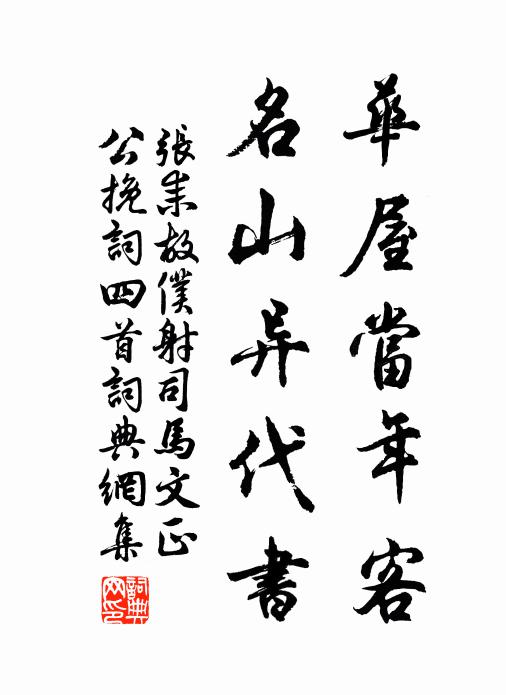 華屋當年客
名山异代書
張耒故僕射司馬文正
公挽詞四首詞典網集
詞典網印